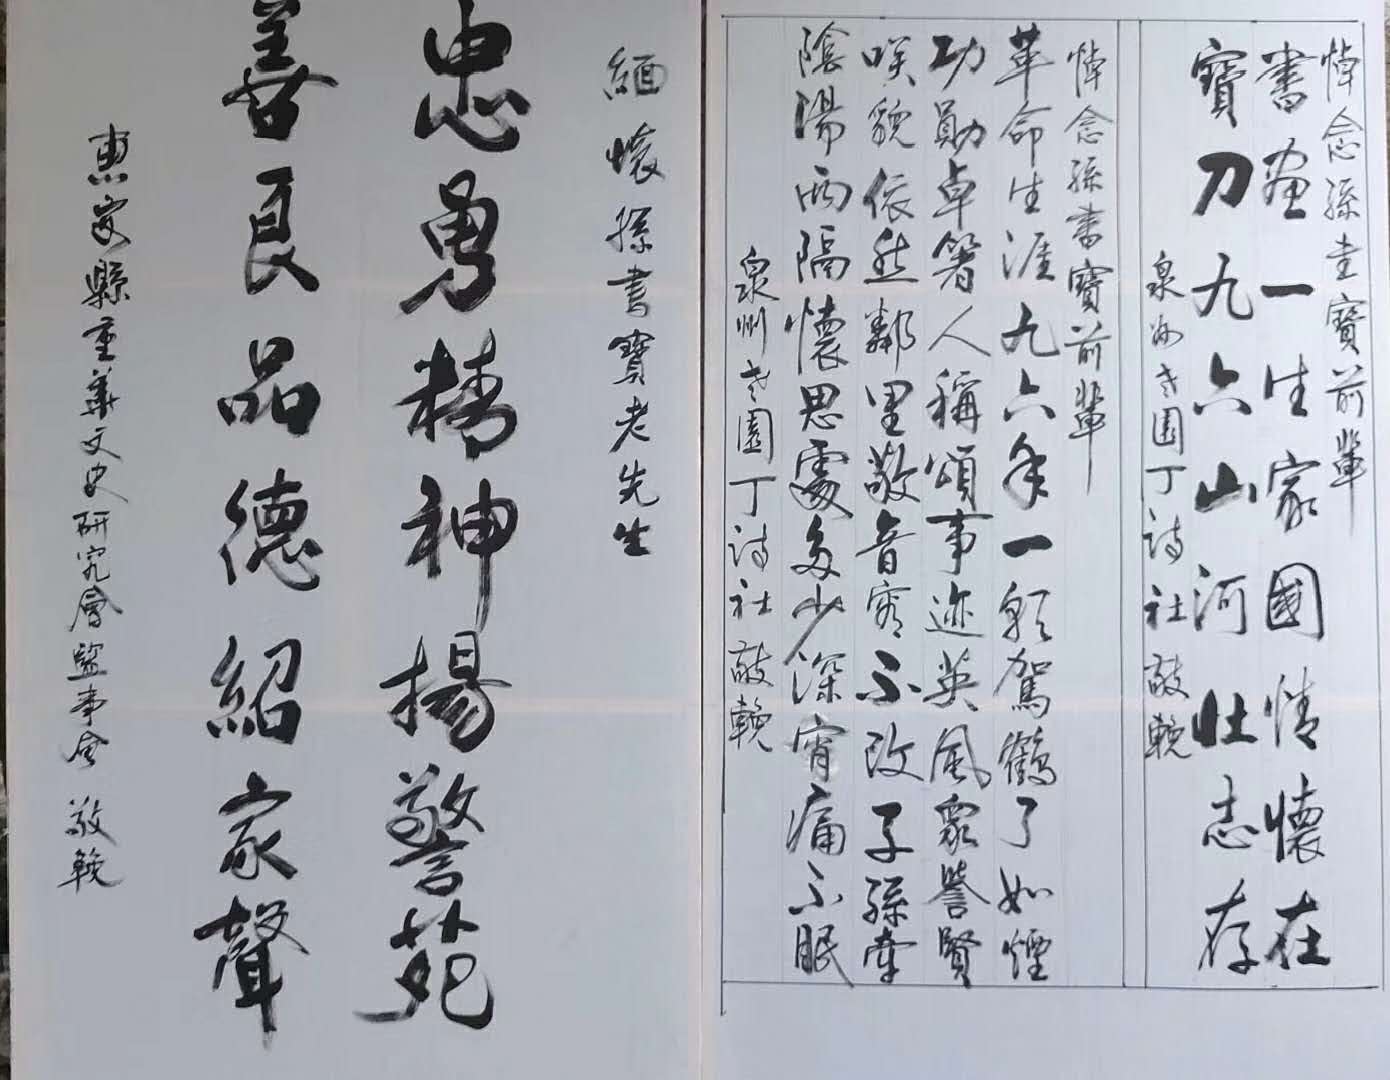 悼念孫書寶前輩
書畫一生家國情懷在
寶刀九六山河壯志存
泉州老園丁詩社敬輓
悼念孫書寶前輩
革命生涯九六年一朝駕鶴了如煙
功勛卓箸人稱頌事迹英風衆譽賢
咲貌依然鄰里敬音容不改子孫牽
陰陽兩隔懷思處多少深宵痛不眠
泉州老園丁詩社敬輓
緬懷孫書寶老先生
忠勇精神揚警苑
善良品德紹家聲
惠安縣重華文史研究會監事會 敬輓